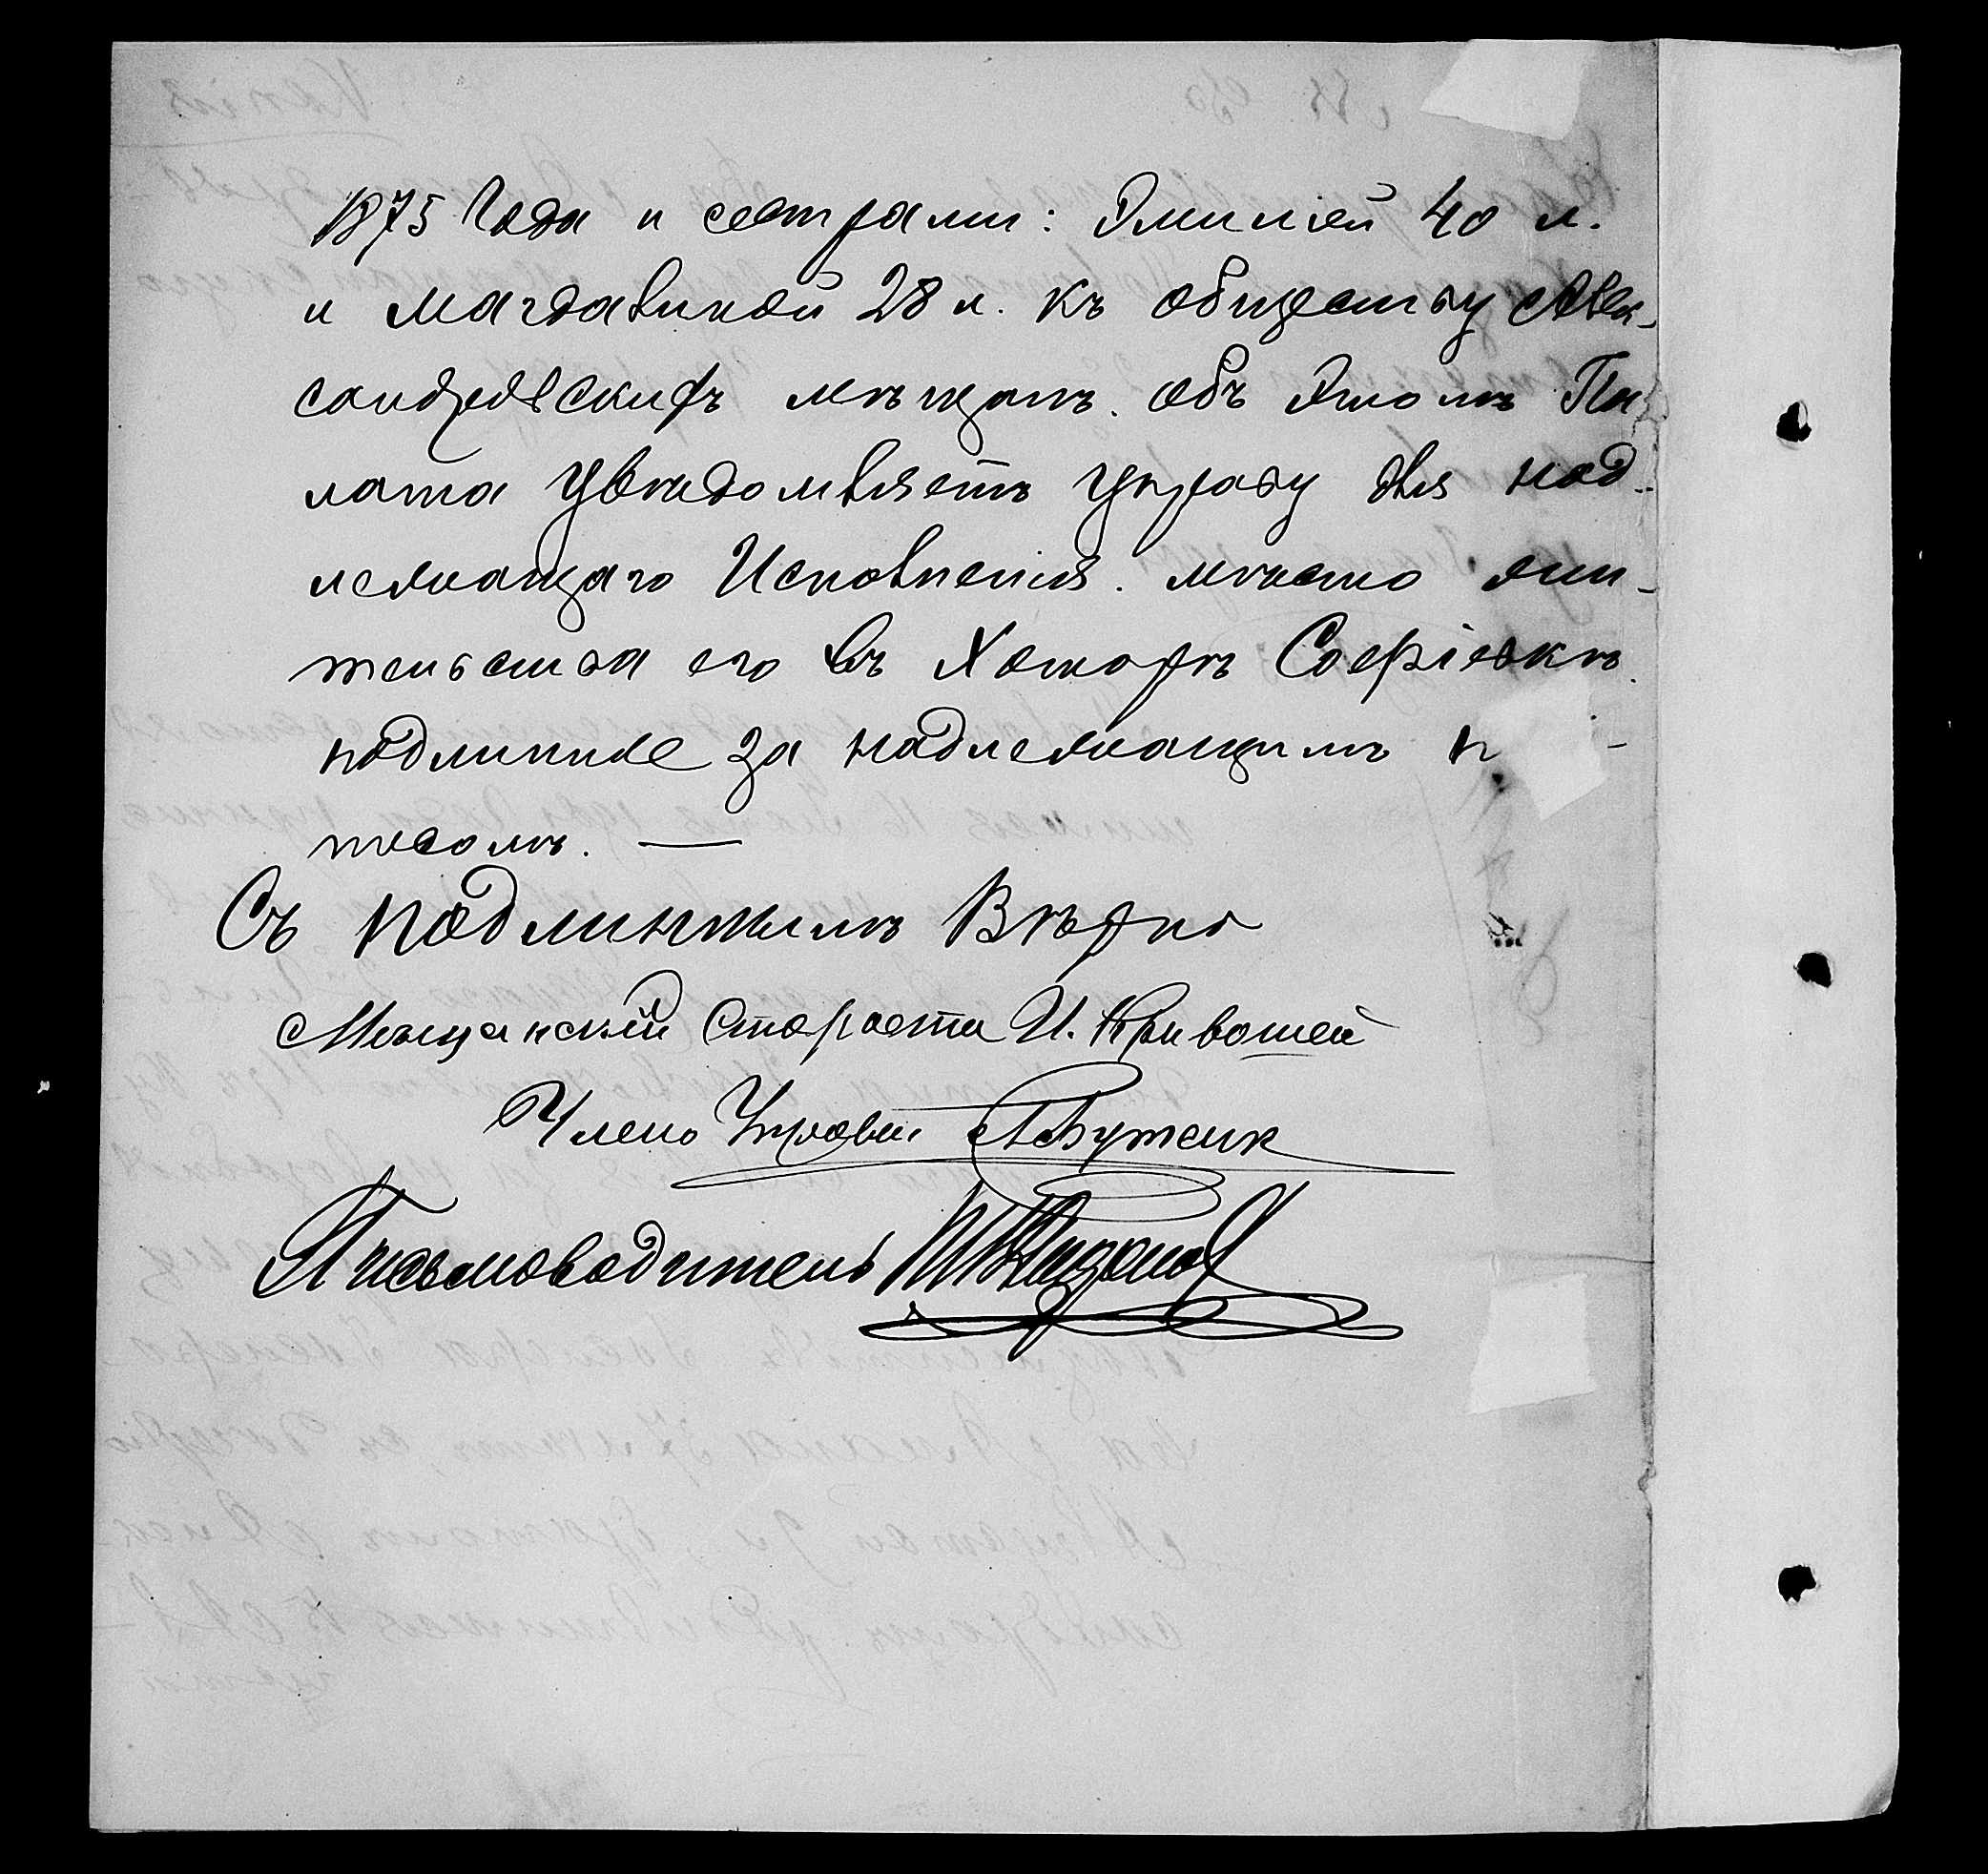 1875 Года и сестрами: Эмиліей 40 л.
и Магдалиной 28 л. къ обществу Алек-
сандровскихъ мѣщанъ. объ этомъ Па-
лата увѣдомляетъ Управу для над-
лежащаго Исполненія. мѣсто жи-
тельства его въ Хуторѣ Софіевкѣ
подлинное за надлежащимъ п -
писомъ. —
Съ подлиннымъ Вѣрно
Мѣщанскій Староста И. Кривошей
Членъ Управы
Письмоводитель